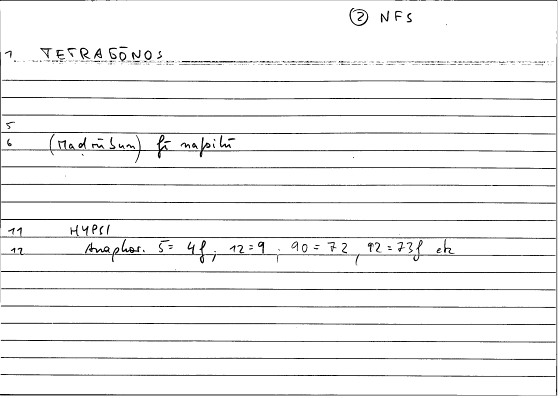 ② NFS
1. TETRAGŌNOS
5
6 (Maḍrūbun) fī nafsihī
11 HYPSI
12 Anaphor. 5 = 4f; 12 = 9; 90 = 72, 92 = 73f etc